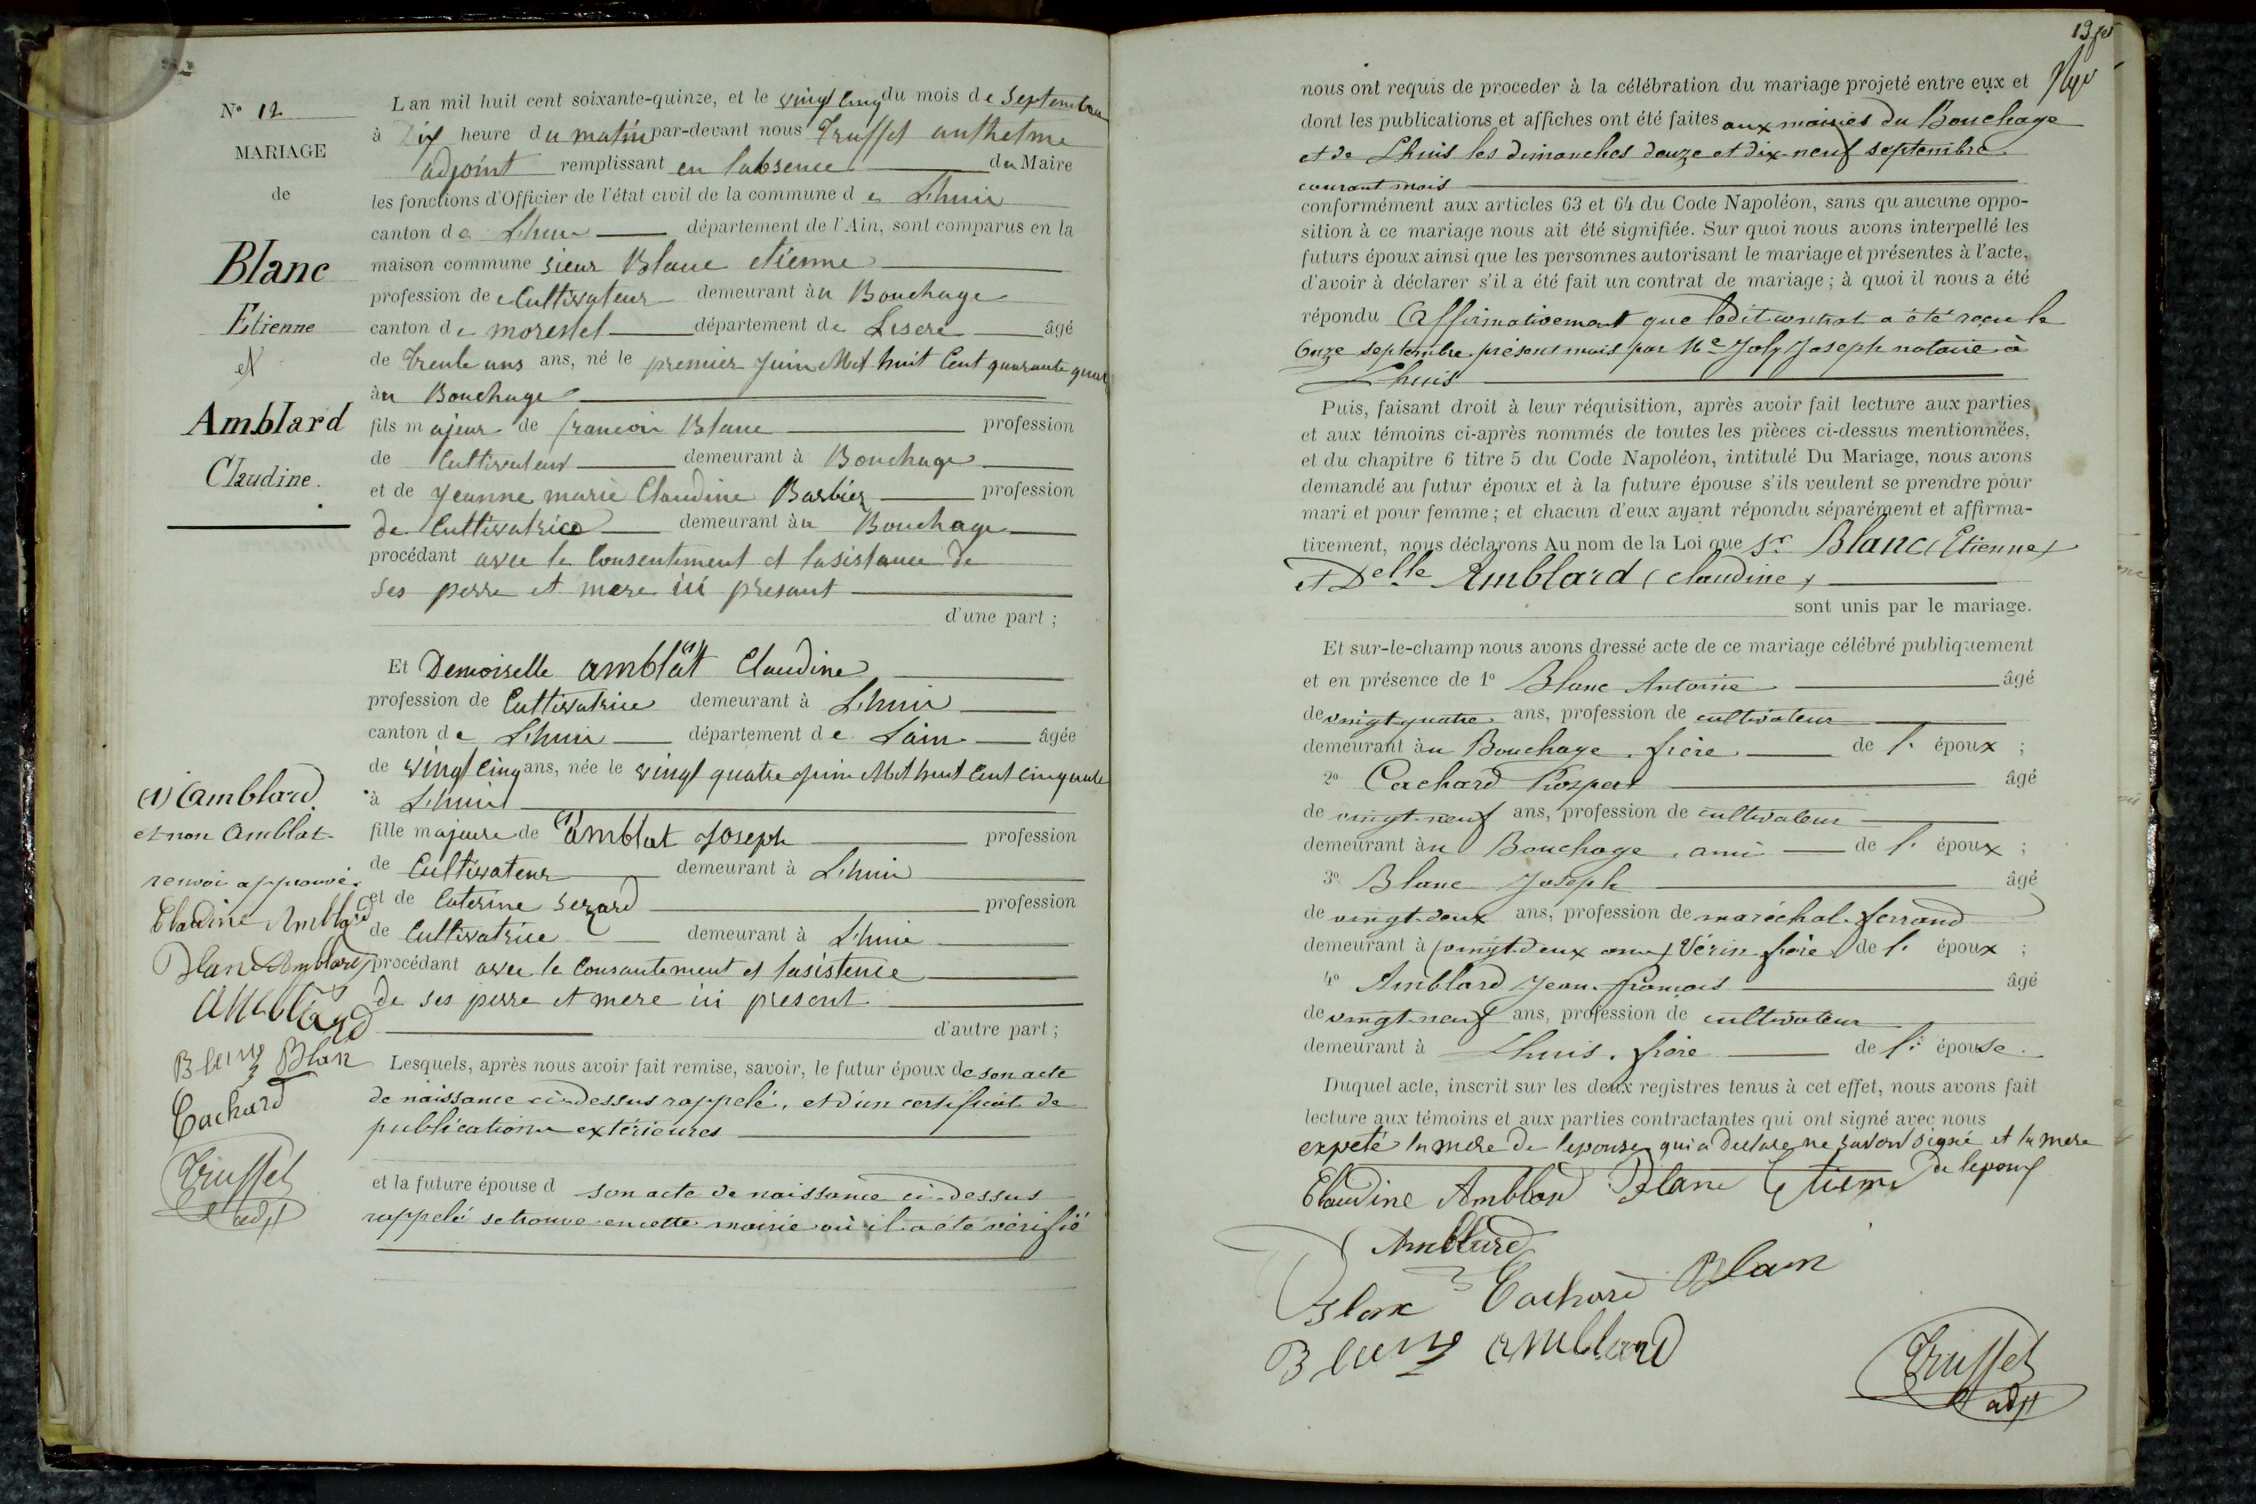 N° 12
MARIAGE
de
Blanc
Etienne
et
Amblard
Claudine.
L an mil huit cent soixante-quinze, et le vingt cinq du mois de Septembre
à Dix heure du matin par-devant nous Truffet anthelme
adjoint remplissant en labsence du Maire
les fonctions d'Officier de l'état civil de la commune de Lhuis
canton de Lhuis département de l'Ain, sont comparus en la
maison commune sieur Blanc etienne
profession de Cultivateur demeurant àu Bouchage
canton de morestel département de Lisere âgé
de Trente ans ans, né le premier Juin Mil huit Cent quarante quat
àu Bouchage
fils majeur de francois Blanc profession
de Cultivateur demeurant à Bouchage
et de Jeanne marie Claudine Barbier profession
de Cultivatrice demeurant àu Bouchage
procédant avec le Consentement et lasistance de
ses perre et mere ici presant
d'une part ;
Et Demoiselle amblat (1) Claudine
profession de Cultivatrice demeurant à Lhuis
canton de Lhuis département de Lain âgée
de vingt Cinq ans, née le vingt quatre Juin Mil huit Cent Cinquante
à Lhuis
fille majeure de (1) amblat Joseph profession
de Cultivateur demeurant à Lhuis
et de Caterine Sezard profession
de Cultivatrice demeurant à Lhuis
procédant avec le Consantement et lasistence
de ses perre et mere ici present
d'autre part ;
Lesquels, après nous avoir fait remise, savoir, le futur époux de son acte
de naissance ci-dessus rappelé, et d'un certificat de
publications extérieures
et la future épouse d son acte de naissance ci-dessus
rappelé se trouve en cette mairie où il a été vérifié
(1) Amblard
et non Amblat
renvoi approuvé.
Claudine Amblard
Blanc Amblard
Amblard
Blanc Blan
Cachard
Truffet
adjt
19
nous ont requis de proceder à la célébration du mariage projeté entre eux et
dont les publications et affiches ont été faites aux mairies du Bouchage
et de Lhuis les dimanches douze et dix-neuf septembre
courant mois
conformément aux articles 63 et 64 du Code Napoléon, sans qu aucune oppo-
sition à ce mariage nous ait été signifiée. Sur quoi nous avons interpellé les
futurs époux ainsi que les personnes autorisant le mariage et présentes à l'acte,
d'avoir à déclarer s'il a été fait un contrat de mariage ; à quoi il nous a été
répondu Affirmativement que ledit contrat a été reçu le
Onze septembre présent mois par Me Joly Joseph notaire à
Lhuis
Puis, faisant droit à leur réquisition, après avoir fait lecture aux parties
et aux témoins ci-après nommés de toutes les pièces ci-dessus mentionnées,
et du chapitre 6 titre 5 du Code Napoléon, intitulé Du Mariage, nous avons
demandé au futur époux et à la future épouse s'ils veulent se prendre pour
mari et pour femme ; et chacun d'eux ayant répondu séparément et affirma-
tivement, nous déclarons Au nom de la Loi que Sr Blanc (Etienne)
et Delle Amblard (Claudine)
sont unis par le mariage.
Et sur-le-champ nous avons dressé acte de ce mariage célébré publiquement
et en présence de 1° Blanc Antoine âgé
de vingt-quatre ans, profession de cultivateur
demeurant àu Bouchage, frère de l' époux ;
2° Cachard Prosper âgé
de vingt-neuf ans, profession de cultivateur
demeurant àu Bouchage, ami de l' époux ;
3° Blanc Joseph âgé
de vingt-deux ans, profession de maréchal-ferrand
demeurant à (vingt-deux ans) Vérin frère de l' époux ;
4° Amblard Jean-françois âgé
de vingt-neuf ans, profession de cultivateur
demeurant à Lhuis, frère de l' épouse.
Duquel acte, inscrit sur les deux registres tenus à cet effet, nous avons fait
lecture aux témoins et aux parties contractantes qui ont signé avec nous
expeté la mere de lepouse qui a declare ne savoir signé et la mere
de lepoux
Claudine Amblard Blanc Etienne
Amblard
Blanc Cachard Blan
Blanc amblard
Truffet
adjt